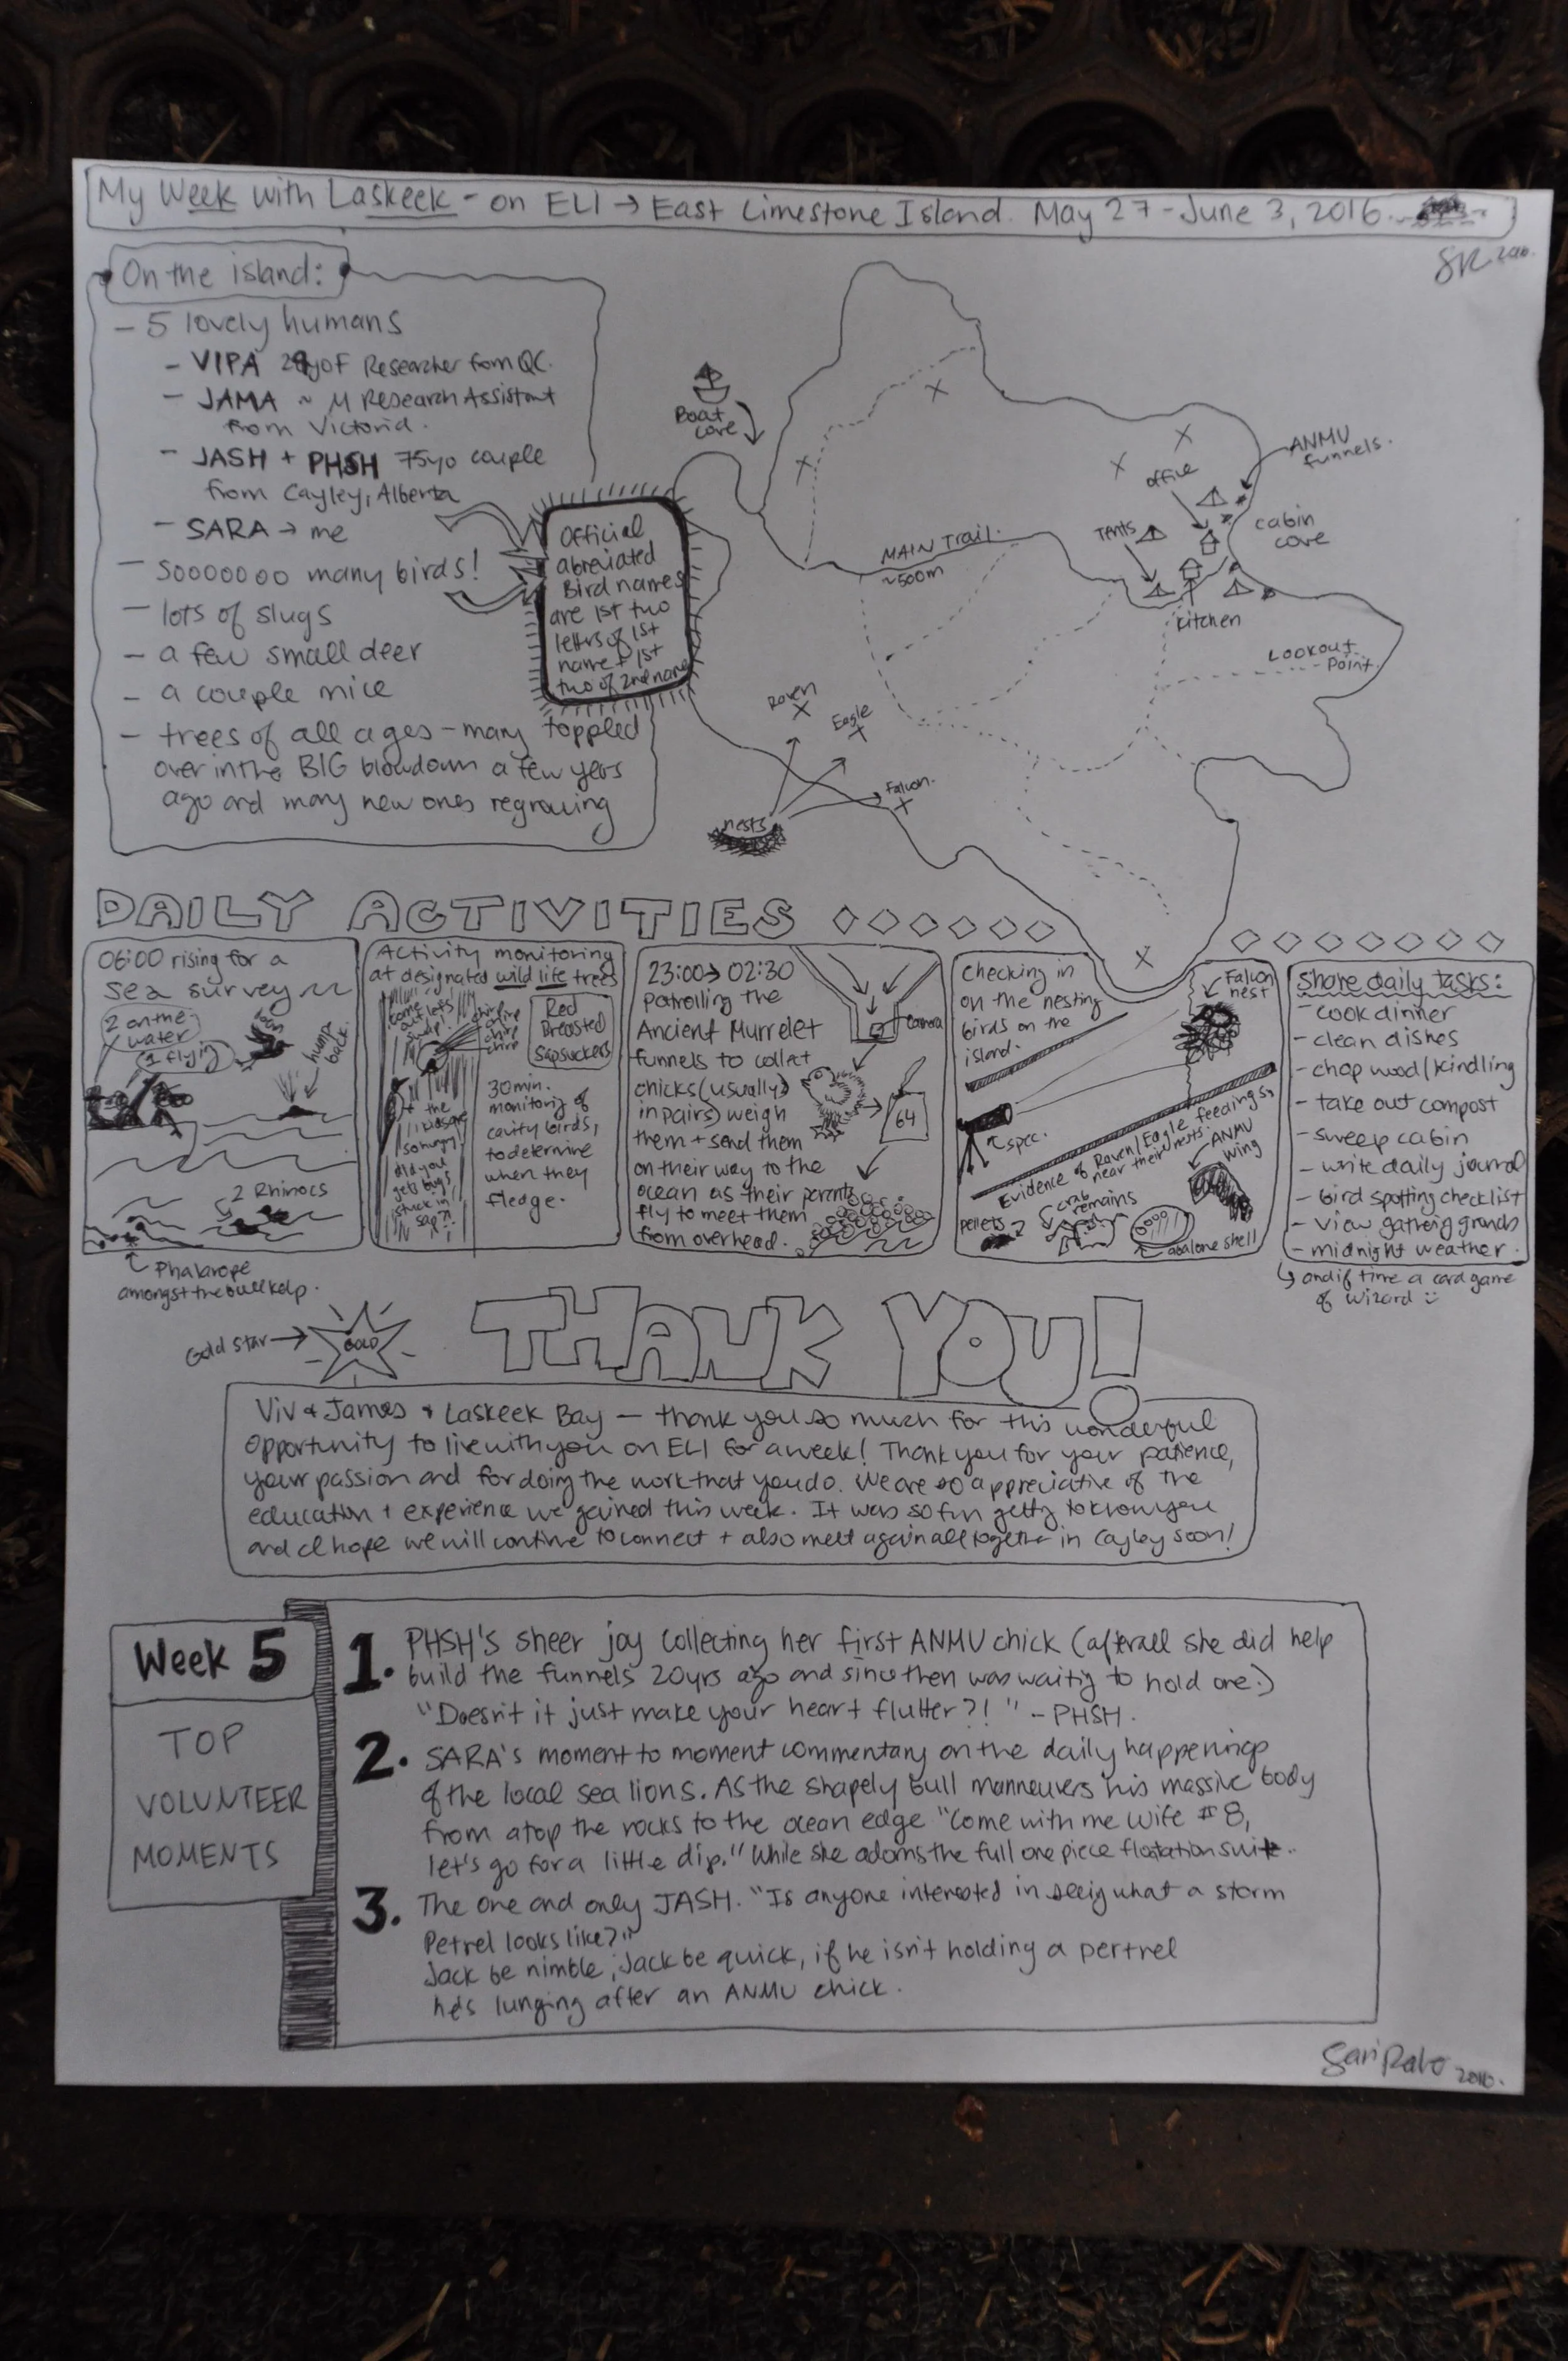 My Week with Laskeek - on ELI → East Limestone Island. May 27 - June 3, 2016.
SR 2016.
On the island:
- 5 lovely humans
- VIPA 29yo F Researcher from QC.
- JAMA ~ M Research Assistant
from Victoria.
- JASH + PHSH 75yo couple
from Cayley, Alberta
- SARA → me
- Sooooooo many birds!
- lots of slugs
- a few small deer
- a couple mice
- trees of all ages - many toppled
over in the BIG blowdown a few years
ago and many new ones regrowing
Official
abreviated
Bird names
are 1st two
letters of 1st
name + 1st
two of 2nd name
Boat
cove
ANMU
funnels.
office
Tents
cabin
cove
MAIN Trail.
~500m
kitchen
Lookout
Point.
Raven
Eagle
Falcon.
nests
DAILY ACTIVITIES
06:00 rising for a
sea survey
2 on the
water
1 flying
loon
hump
back.
2 Rhinos
Phalarope
amongst the bull kelp.
Activity monitoring
at designated wild life trees
Red
Breasted
Sapsuckers
chirp
chirp
chirp
chirp
the
kids are
so hungry!
did you
get bugs
stuck in
sap?!
30 min.
monitoring of
cavity birds,
to determine
when they
fledge.
23:00 → 02:30
patrolling the
Ancient Murrelet
funnels to collect
chicks (usually
in pairs) weigh
them + send them
on their way to the
ocean as their parents
fly to meet them
from overhead.
camera
64
checking in
on the nesting
birds on the
island.
Falcon
nest
spec.
Evidence of Raven/Eagle feedings,
near their nests.
ANMU
wing
pellets
crab
remains
abalone shell
Share daily tasks:
- cook dinner
- clean dishes
- chop wood/kindling
- take out compost
- sweep cabin
- write daily journal
- bird spotting checklist
- view gathering grounds
- midnight weather.
and if time a card game
of wizard :)
Gold star →
GOLD
THANK YOU!
Viv & James & Laskeek Bay — thank you so much for this wonderful
opportunity to live with you on ELI for a week! Thank you for your patience,
your passion and for doing the work that you do. We are so appreciative of the
education + experience we gained this week. It was so fun getting to know you
and I hope we will continue to connect + also meet again all together in Cayley soon!
Week 5
TOP
VOLUNTEER
MOMENTS
1. PHSH's sheer joy collecting her first ANMU chick (afterall she did help
build the funnels 20yrs ago and since then was waiting to hold one.)
"Doesn't it just make your heart flutter?!" - PHSH.
2. SARA's moment to moment commentary on the daily happenings
of the local sea lions. As the shapely bull manneuvers his massive body
from atop the rocks to the ocean edge "Come with me wife #8,
let's go for a little dip." While she adorns the full one piece floatation suit.
3. The one and only JASH. "Is anyone interested in seeing what a storm
Petrel looks like?"
Jack be nimble, Jack be quick, if he isn't holding a pertrel
he's lunging after an ANMU chick.
2016.